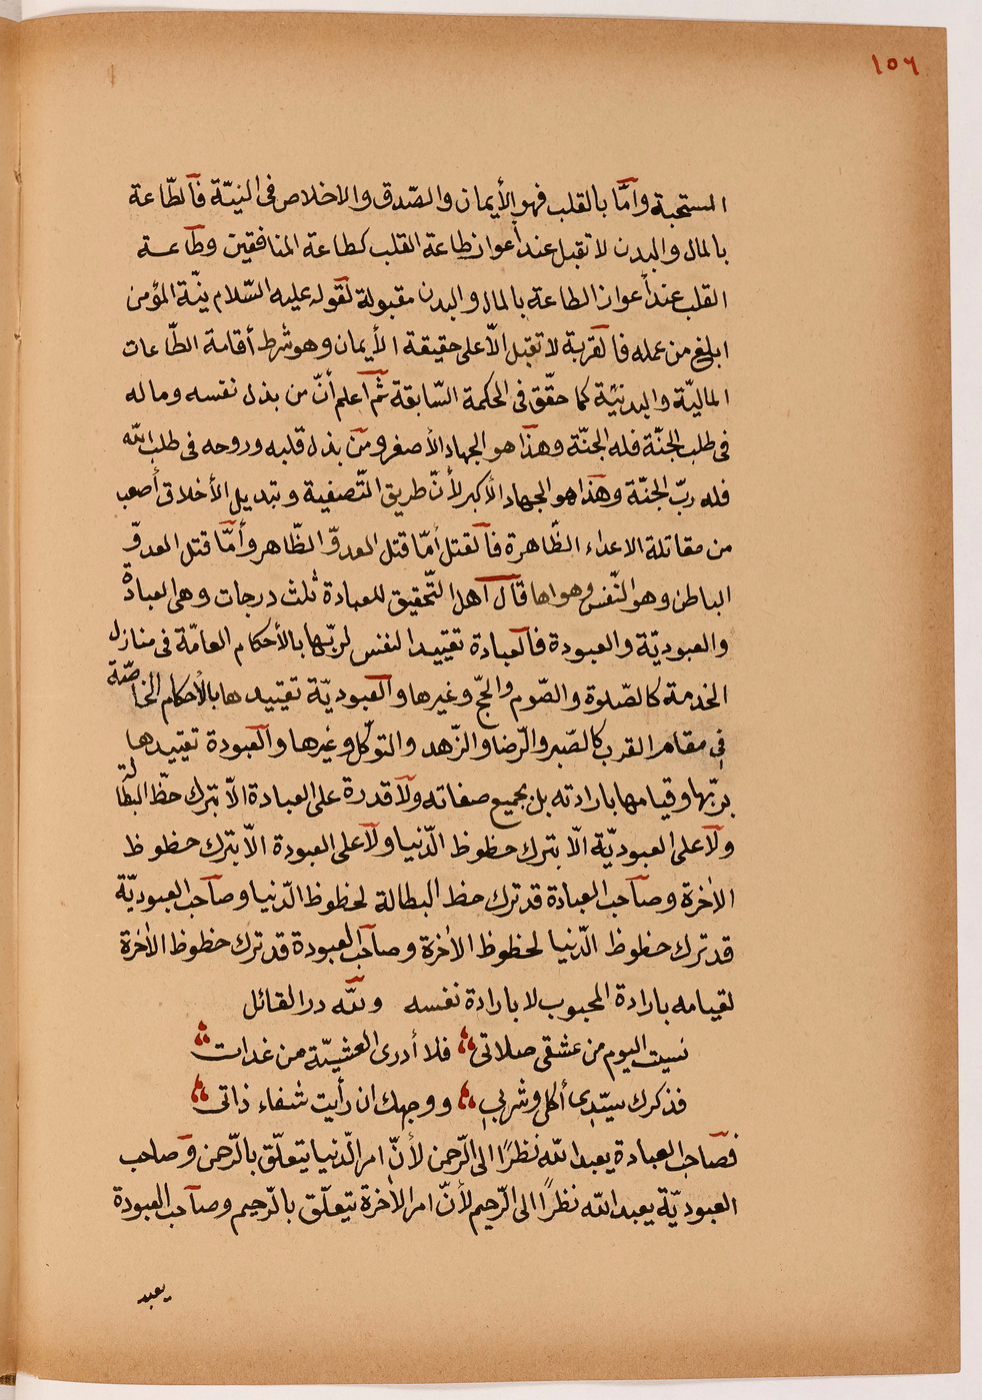 ١٥٦
المستحبة وامّا بالقلب فهو الأيمان والصّدق والاخلاص فى النيّة فالطّاعة
بالمال والبدن لا تقبل عند أعواز طاعة القلب كطاعة المنافقين وطاعة
القلب عند أعواز الطاعة بالمال والبدن مقبولة لقوله عليه السّلام نيّة المؤمن
ابلغ من عمله فالقربة لا تقبل الّا على حقيقة الأيمان وهو شرط أقامة الطّاعات
الماليّة والبدنيّة كما حقّق فى الحكمة السّابقة ثم اعلم أنّ من بذل نفسه وماله
فى طلب الجنّة فله الجنّة وهذا هو الجهاد الأصغر ومن بذل قلبه وروحه فى طلب الله
فله ربّ الجنّة وهذا هو الجهاد الأكبر لأنّ طريق التّصفية وتبديل الأخلاق أصعب
من مقاتلة الاعداء الظّاهرة فالقتل أمّا قتل العدوّ الظّاهر وأمّا قتل العدوّ
الباطن وهو النّفس وهواها قال اهل التّحقيق للعبادة ثلث درجات وهى العبادة
والعبوديّة والعبودة فالعبادة تقييد النفس لربّها بالأحكام العامّة فى منازل
الخدمة كالصّلوة والصّوم والحجّ وغيرها والعبوديّة تقييدها بالأحكام الخاصّة
فى مقام القرب كالصّبر والرّضا والزّهد والتوكّل وغيرها والعبودة تقييدها
بربّها وقيامها بارادته بل بجميع صفاته ولا قدرة على العبادة الّا بترك حظّ البطالة
ولا على العبوديّة الّا بترك حظوظ الدّنيا ولا على العبودة الّا بترك حظوظ
الاٰخرة وصاحب العبادة قد ترك حظ البطالة لحظوظ الدّنيا وصاحب العبوديّة
قد ترك حظوظ الدّنيا لحظوظ الاٰخرة وصاحب العبودة قد ترك حظوظ الاٰخرة
لقيامه بارادة المحبوب لا بارادة نفسه ولله در القائل
نسيت اليوم من عشقى صلاتى فلا أدرى العشيّة من غدات
فذكرك سيّدى أكلى وشربى ووجهك ان رأيت شفاء ذاتى
فصاحب العبادة يعبد الله نظرًا الى الرّحمن لأنّ امر الدّنيا يتعلّق بالرّحمن وصاحب
العبوديّة يعبد الله نظرًا الى الرّحيم لأنّ امر الاٰخرة يتعلّق بالرّحيم وصاحب العبودة
يعبد